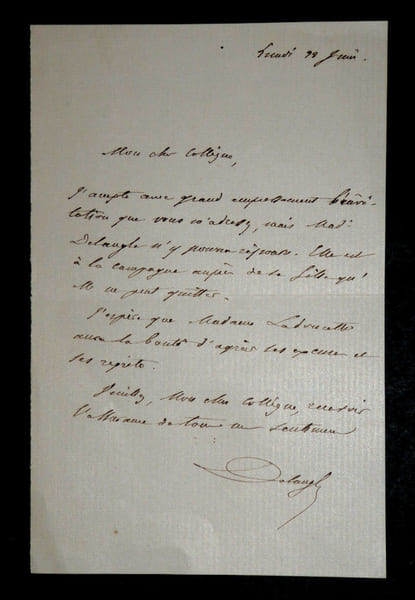 Lundi 28 Juin.
Mon cher Collègue,
J'accepte avec grand empressement l'invi-
tation que vous m'adressez, mais Mad.
Delangle n'y pourra répondre. Elle est
à la campagne auprès de sa fille qu'
elle ne peut quitter.
J'espère que Madame Ladoucette
aura la bonté d'agréer ses excuses et
ses regrets.
Veuillez, Mon cher Collègue, recevoir
l'assurance de tous mes sentimens
Delangle